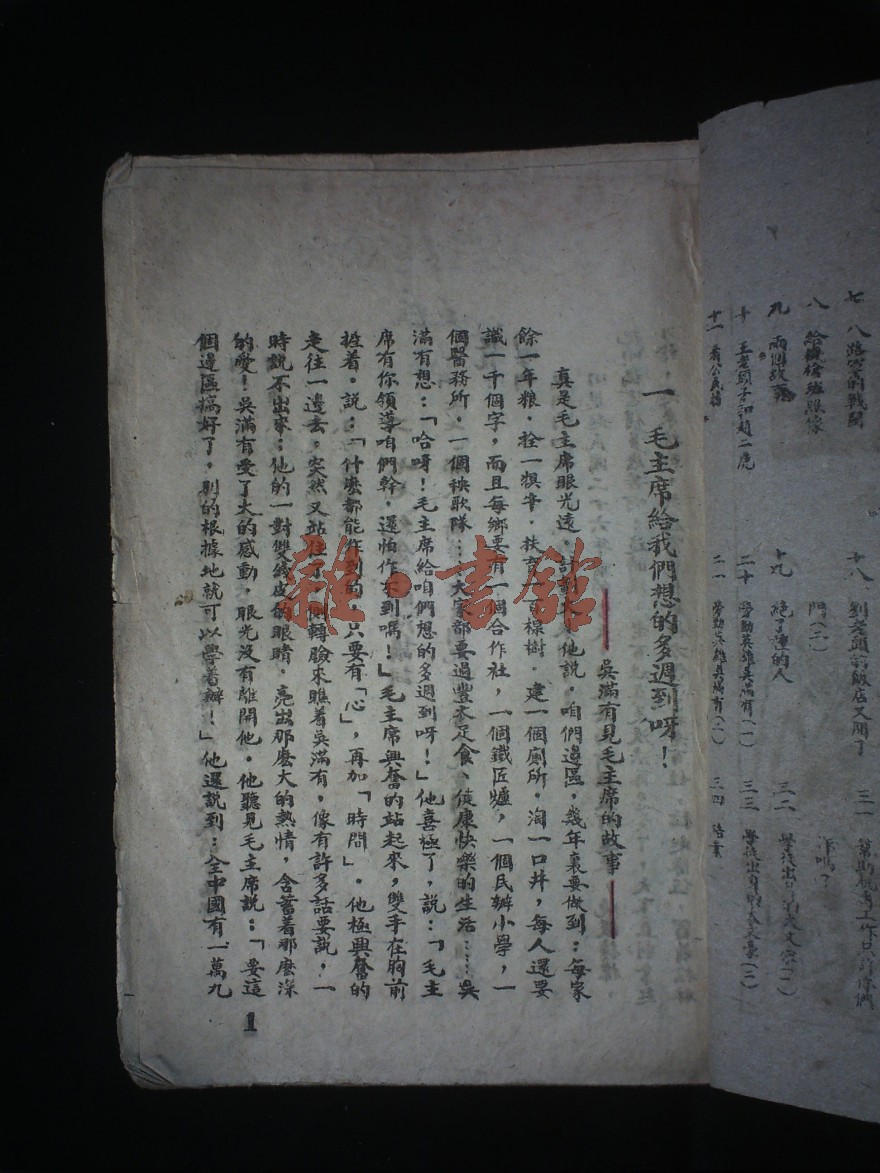 七 八路軍的戰鬥
八 給機槍班照像
九 兩個故事
十 王老頭子和趙二虎
十一 看公民榜
十八 劉老頭的飯店又開了
門(二)
十九 絕了種的人
二十 勞動英雄吳滿有(一)
二一 勞動英雄吳滿有(二)
三一
三二 學徒出身的大文豪(一)
三三 學徒出身的大文豪(二)
三四
一 毛主席給我們想的多週到呀!
——吳滿有見毛主席的故事——
真是毛主席眼光遠,計劃大,他說,咱們邊區,幾年裏要做到:每家
餘一年粮,拴一犋牛,扶育一百棵樹,建一個廁所,淘一口井,每人還要
識一千個字,而且每鄉要有一個合作社,一個鐵匠爐,一個民辦小學,一
個醫務所,一個秧歌隊……大家都要過豐衣足食、健康快樂的生活……吳
滿有想:「哈呀!毛主席給咱們想的多週到呀!」他喜極了,說:「毛主
席有你領導咱們幹,還怕作不到嗎!」毛主席興奮的站起來,雙手在胸前
搉着,說:「什麼都能作到的,只要有「心」,再加「時間」。他極興奮的
走往一邊去,突然又站住了,側轉臉來瞧着吳滿有,像有許多話要說,一
時說不出來:他的一對雙綫皮的眼睛,亮出那麼大的熱情,含蓄着那麼深
的愛!吳滿有受了大的感動,眼光沒有離開他。他聽見毛主席說:「要這
個邊區搞好了,別的根據地就可以學着辦!」他還說到:全中國有一萬九
1
雜·書館